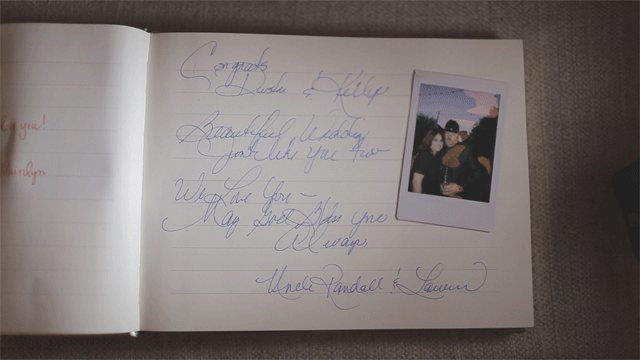 you!
Congrats
& Kellye
Beautiful Wedding
Just like you two
We Love You –
May God Bless you
Always
Uncle Randall & Lauren